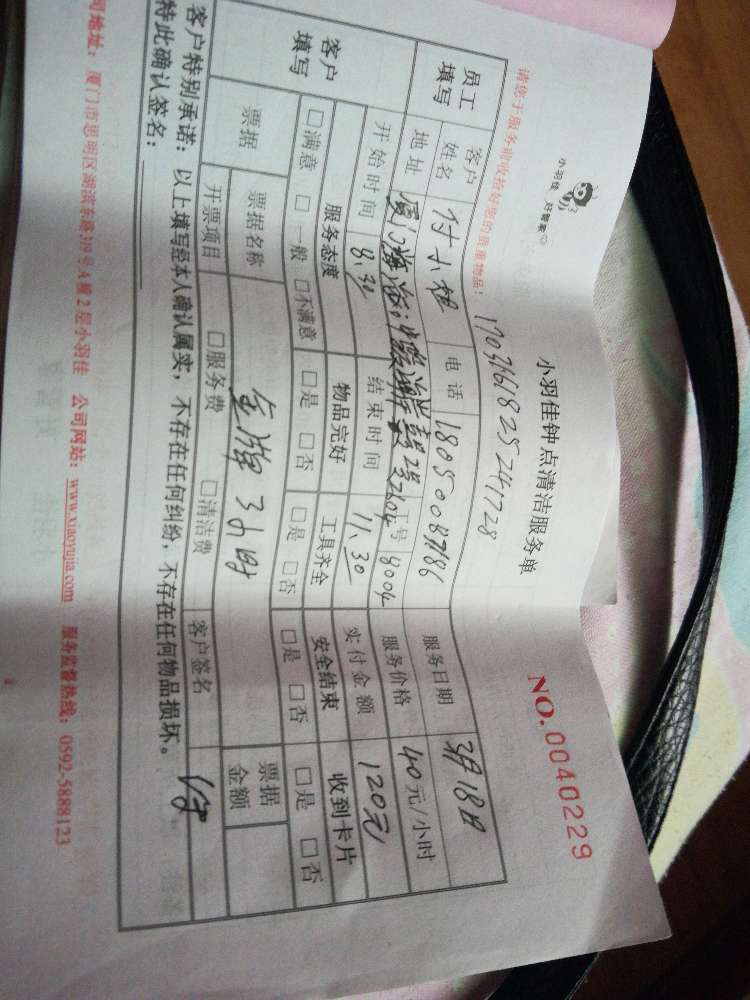 小羽佳 好管家
小羽佳钟点清洁服务单
NO.0040229
请您于服务前收拾好您的贵重物品！
17031618252241728
员工填写 客户姓名 付小姐 电话 18050087186 服务日期 3月18日
地址 厦门 海 2604 工号 8004 服务价格 40元/小时
开始时间 8:30 结束时间 11:30 实付金额 120元
客户填写 服务态度 物品完好 工具齐全 安全结束 收到卡片
□满意 □一般 □不满意 □是 □否 □是 □否 □是 □否 □是 □否
票据 票据名称 金牌3小时 票据金额
开票项目 □服务费 □清洁费 客户签名
客户特别承诺：以上填写经本人确认属实，不存在任何纠纷，不存在任何物品损坏。
特此确认签名：
司地址：厦门市思明区湖滨东路319号A幢2层小羽佳 公司网站：www.xiaoyujia.com 服务监督热线：0592-5888123